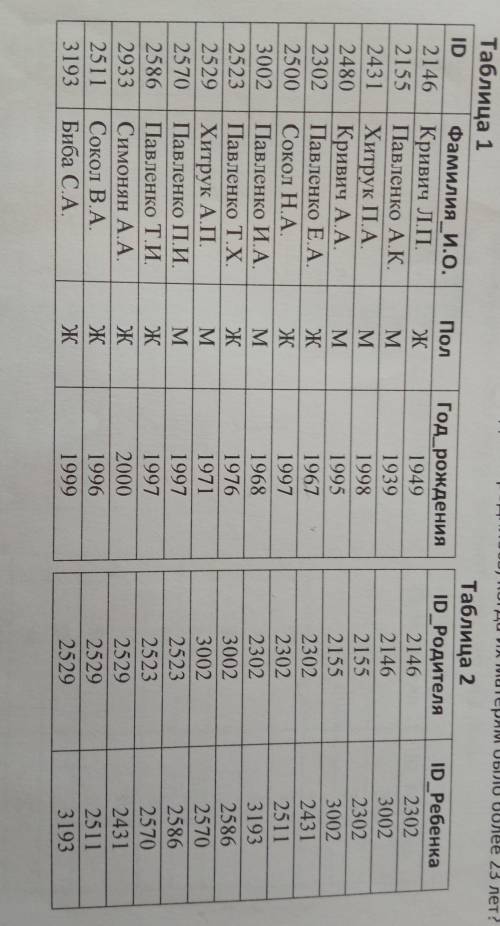 когда их матерям было более 23 лет?
Таблица 1
ID Фамилия_И.О. Пол Год_рождения
2146 Кривич Л.П. Ж 1949
2155 Павленко А.К. М 1939
2431 Хитрук П.А. М 1998
2480 Кривич А.А. М 1995
2302 Павленко Е.А. Ж 1967
2500 Сокол Н.А. Ж 1997
3002 Павленко И.А. М 1968
2523 Павленко Т.Х. Ж 1976
2529 Хитрук А.П. М 1971
2570 Павленко П.И. М 1997
2586 Павленко Т.И. Ж 1997
2933 Симонян А.А. Ж 2000
2511 Сокол В.А. Ж 1996
3193 Биба С.А. Ж 1999
Таблица 2
ID_Родителя ID_Ребенка
2146 2302
2146 3002
2155 2302
2155 3002
2302 2431
2302 2511
2302 3193
3002 2586
3002 2570
2523 2586
2523 2570
2529 2431
2529 2511
2529 3193